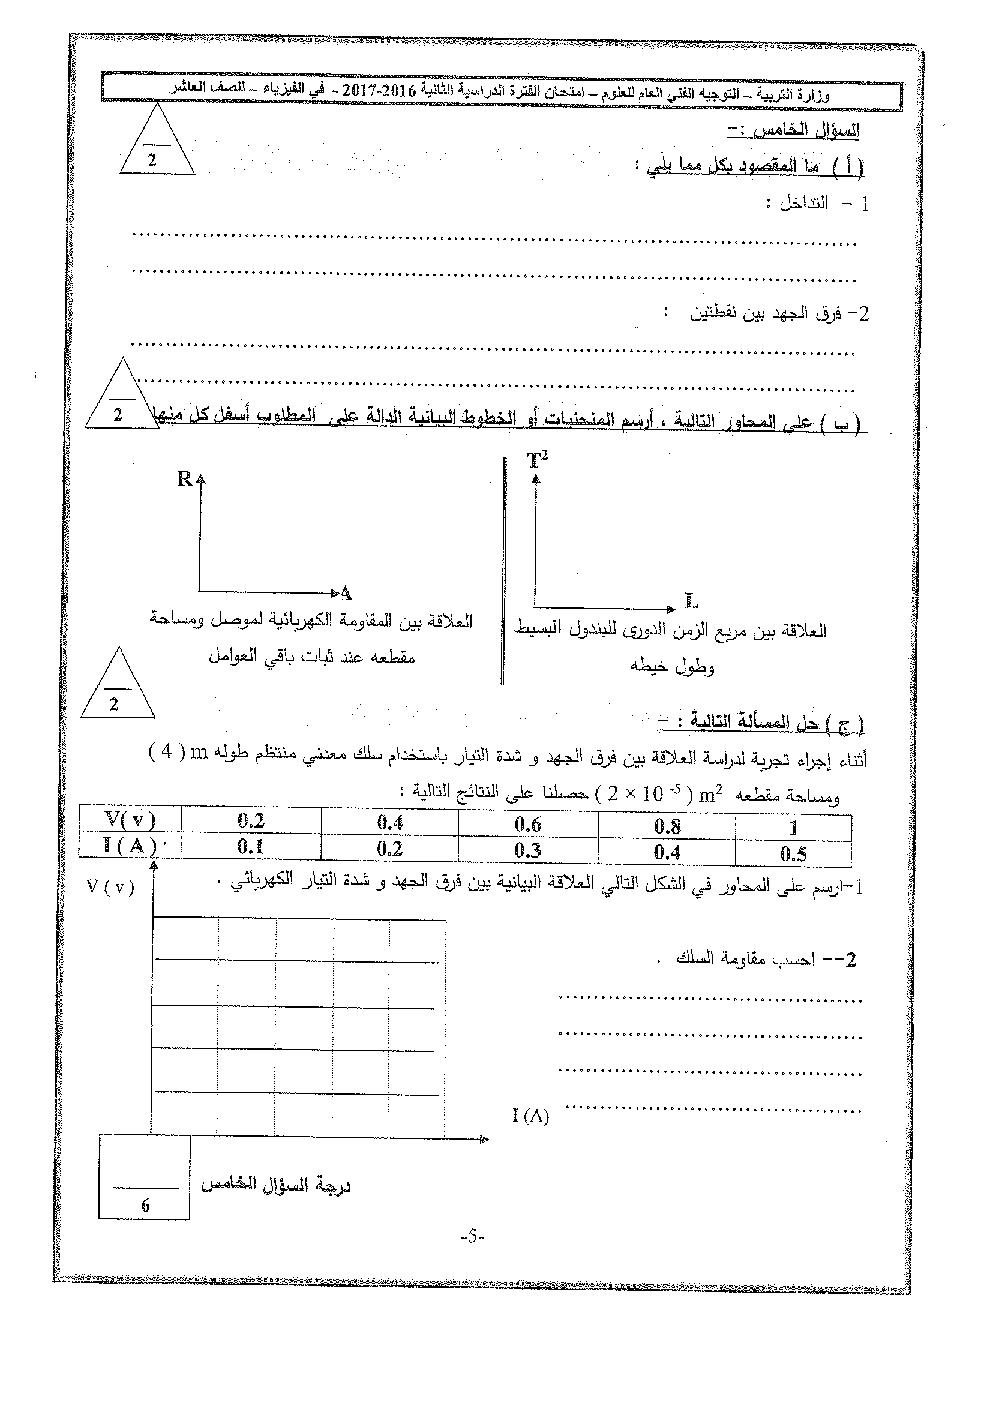 وزارة التربية – التوجيه الفني العام للعلوم – امتحان الفترة الدراسية الثانية 2016-2017 – في الفيزياء – للصف العاشر
السؤال الخامس :-
2
( أ ) ما المقصود بكل مما يلي :
1 – التداخل :
2– فرق الجهد بين نقطتين :
2
( ب ) على المحاور التالية ، أرسم المنحنيات أو الخطوط البيانية الدالة على المطلوب أسفل كل منها
T²
L
العلاقة بين مربع الزمن الدوري للبندول البسيط
وطول خيطه
R
A
العلاقة بين المقاومة الكهربائية لموصل ومساحة
مقطعه عند ثبات باقي العوامل
2
( ج ) حل المسألة التالية : –
أثناء إجراء تجربة لدراسة العلاقة بين فرق الجهد و شدة التيار باستخدام سلك معدني منتظم طوله m ( 4 )
ومساحة مقطعه m² ( 2 × 10 ⁻⁵ ) حصلنا على النتائج التالية :
V( v ) 0.2 0.4 0.6 0.8 1
I ( A ) 0.1 0.2 0.3 0.4 0.5
1–ارسم على المحاور في الشكل التالي العلاقة البيانية بين فرق الجهد و شدة التيار الكهربائي .
V ( v )
2-- احسب مقاومة السلك .
I (A)
درجة السؤال الخامس
6
-5-